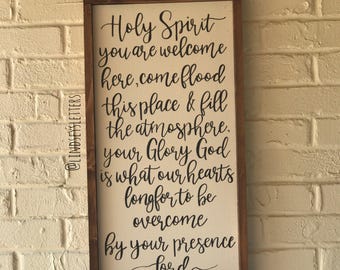 Holy Spirit
you are welcome
here, come flood
this place & fill
the atmosphere.
your Glory God
is what our hearts
long for to be
overcome
by your presence
lord
@LINDSEYSLETTERS